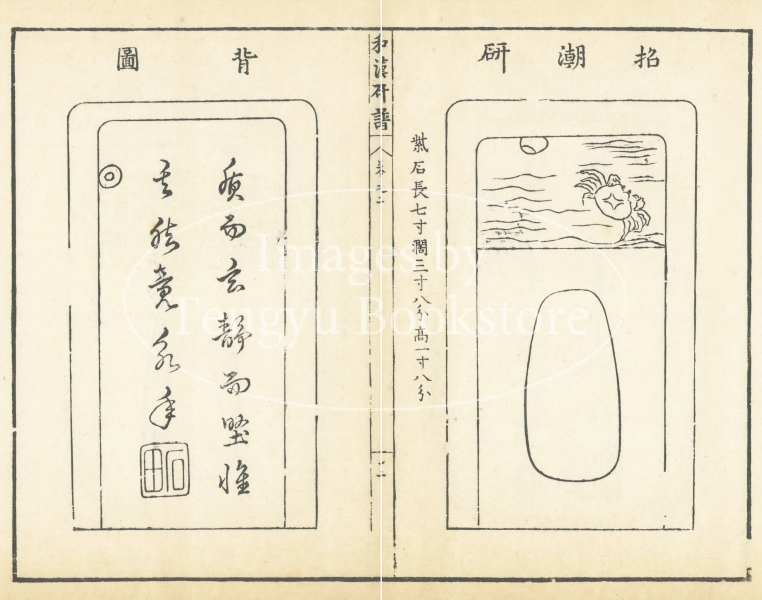 招潮硏
紫石長七寸濶三寸八分高一寸八分
和漢硏譜
卷之二
背圖
質而玄靜而堅惟
其然竟永年
石田
Images by
Tengyu Bookstore